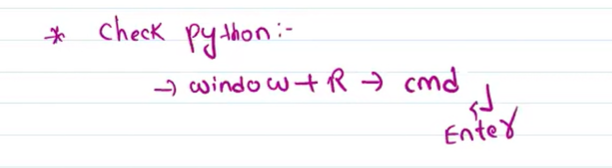 * Check python:-
→ window + R → cmd
↵ Enter